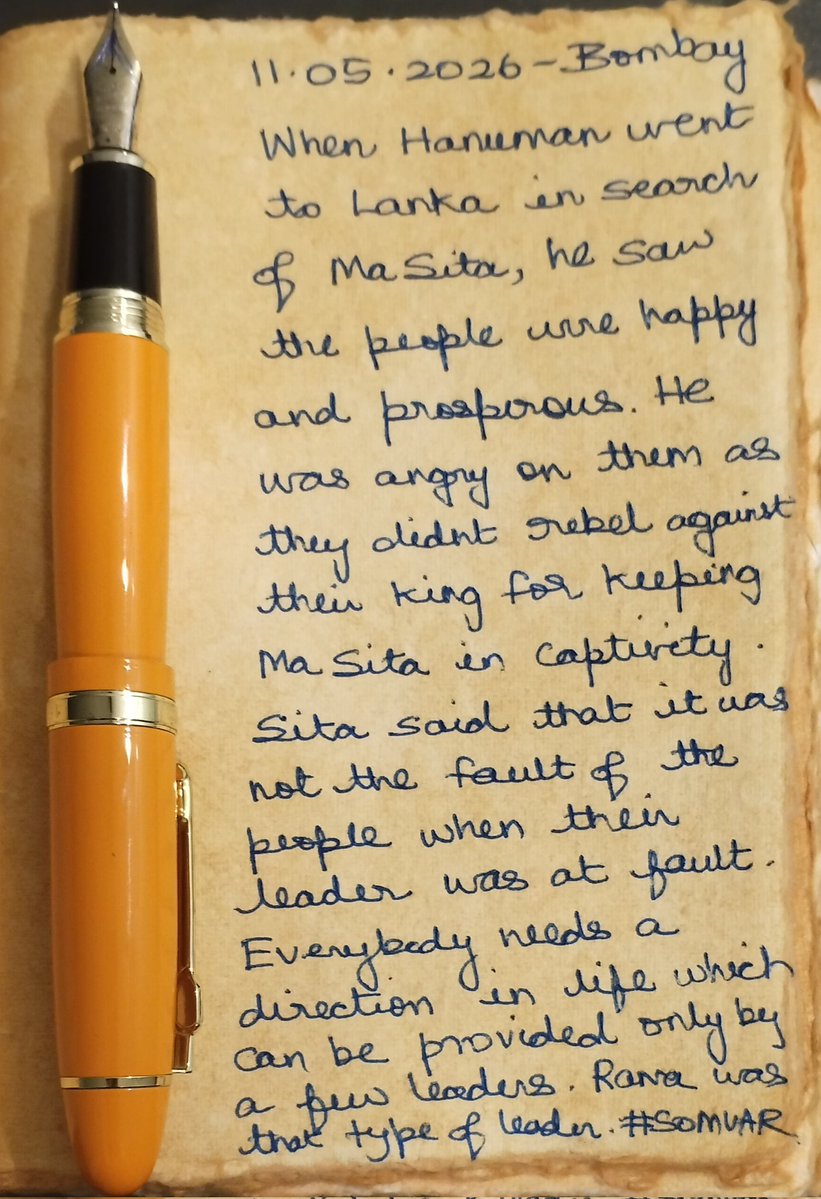 11.05.2026 - Bombay
When Hanuman went
to Lanka in search
of Ma Sita, he saw
the people were happy
and prosperous. He
was angry on them as
they didnt rebel against
their king for keeping
Ma Sita in captivity.
Sita said that it was
not the fault of the
people when their
leader was at fault.
Everybody needs a
direction in life which
can be provided only by
a few leaders. Rama was
that type of leader. #SOMVAR